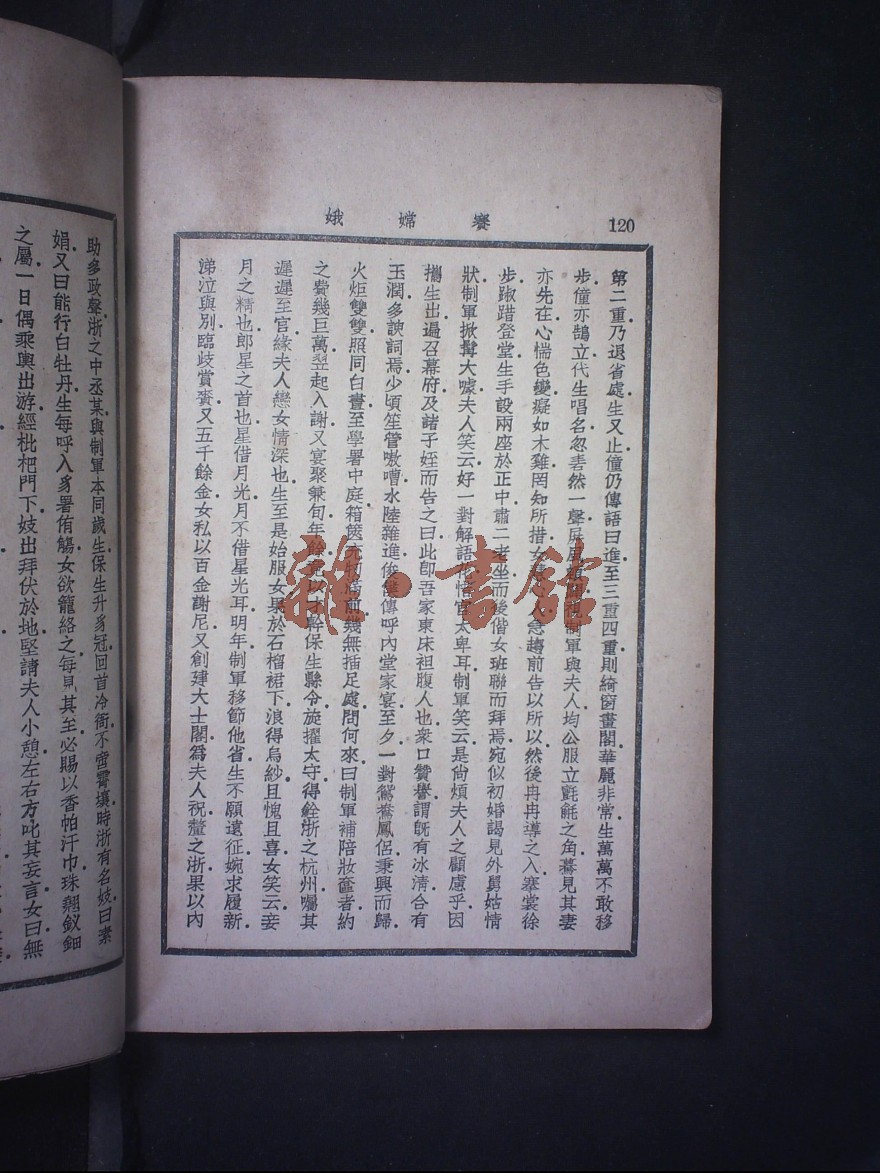 120
饕嫦娥
第二重乃退省處生又止僮仍傳語曰進至三重四重則綺窗畫閣華麗非常生萬萬不敢移
步僮亦鵠立代生唱名忽砉然一聲屏 制軍與夫人均公服立氈毹之角驀見其妻
亦先在心惴色變癡如木雞罔知所措女 人急趨前告以所以然後冉冉導之入搴裳徐
步踧踖登堂生手設兩座於正中肅二老坐而後偕女班聯而拜焉宛似初婚謁見外舅姑情
狀制軍掀髯大噱夫人笑云好一對解語花惜官太卑耳制軍笑云是尙煩夫人之顧慮乎因
攜生出遍召幕府及諸子姪而告之曰此卽吾家東床袒腹人也衆口贊譽謂旣有冰淸合有
玉潤多諛詞焉少頃笙管嗷嘈水陸雜進俊僕傳呼內堂家宴至夕一對鴛鴦鳳侶秉興而歸
火炬雙雙照同白晝至學署中庭箱篋充牣 前幾無揷足處問何來曰制軍補陪妝奩者約
之費幾巨萬翌起入謝又宴聚兼旬年餘竟以才幹保生縣令旋擢太守得銓浙之杭州囑其
遲遲至官緣夫人戀女情深也生至是始服女果於石榴裙下浪得烏紗且愧且喜女笑云妾
月之精也郎星之首也星借月光月不借星光耳明年制軍移節他省生不願遠征婉求履新
涕泣與別臨歧賞賚又五千餘金女私以百金謝尼又創建大士閣爲夫人祝釐之浙果以內
助多政聲浙之中丞某與制軍本同歲生保生升爲冠回首冷衙不啻霄壤時浙有名妓曰素
娟又曰能行白牡丹生每呼入爲署侑觴女欲籠絡之每見其至必賜以香帕汗巾珠翹釵鈿
之屬一日偶乘輿出游經枇杷門下妓出拜伏於地堅請夫人小憩左右方叱其妄言女曰無